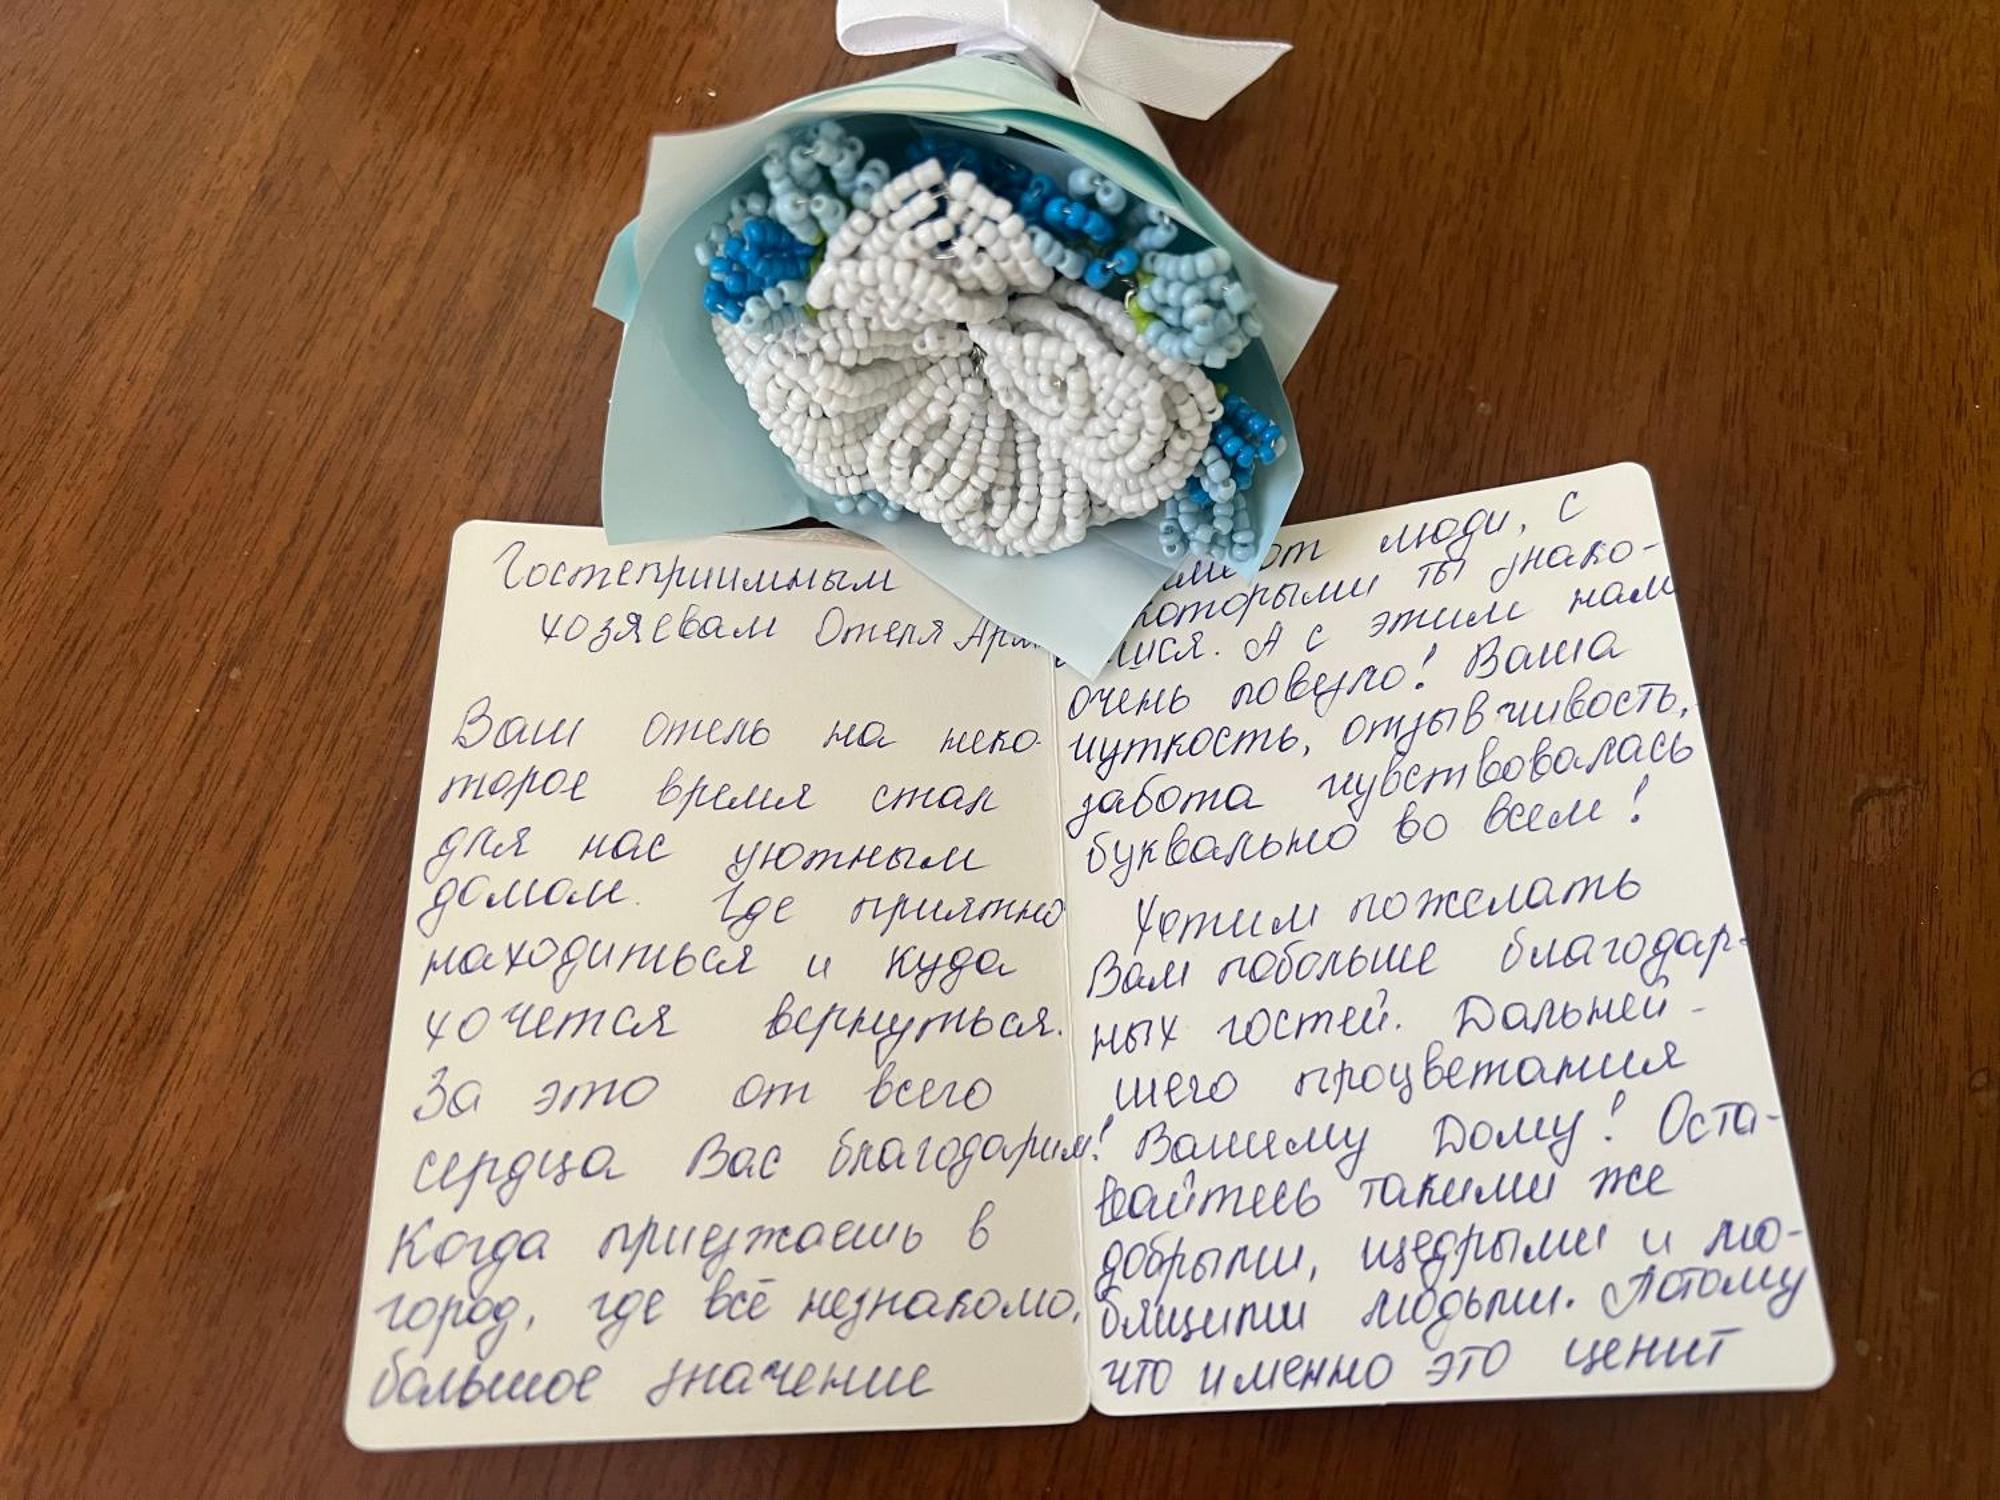 Гостеприимным
хозяевам Отеля
Ваш отель на неко-
торое время стал
для нас уютным
домом. Где приятно
находиться и куда
хочется вернуться.
За это от всего
сердца Вас благодарим!
Когда приезжаешь в
город, где всё незнакомо,
большое значение
люди, с
которыми ты знако-
мишся. А с этим нам
очень повезло! Ваша
чуткость, отзывчивость,
забота чувствовалась
буквально во всем!
Хотим пожелать
Вам побольше благодар-
ных гостей. Дальней-
шего процветания
Вашему Дому! Оста-
вайтесь такими же
добрыми, щедрыми и лю-
бящими людьми. Потому
что именно это ценит